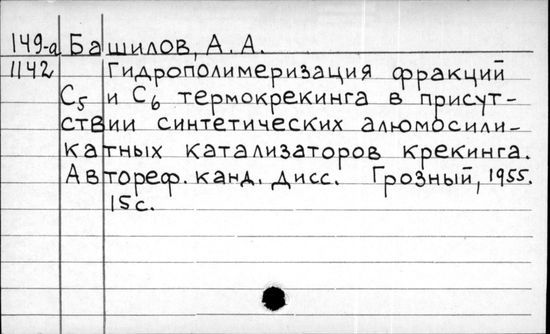 149-а Башилов, А. А.
1142 Гидрополимеризация фракций
C₅ и C₆ термокрекинга в присут-
ствии синтетических алюмосили-
катных катализаторов крекинга.
Автореф. канд. дисс. Грозный, 1955.
15с.